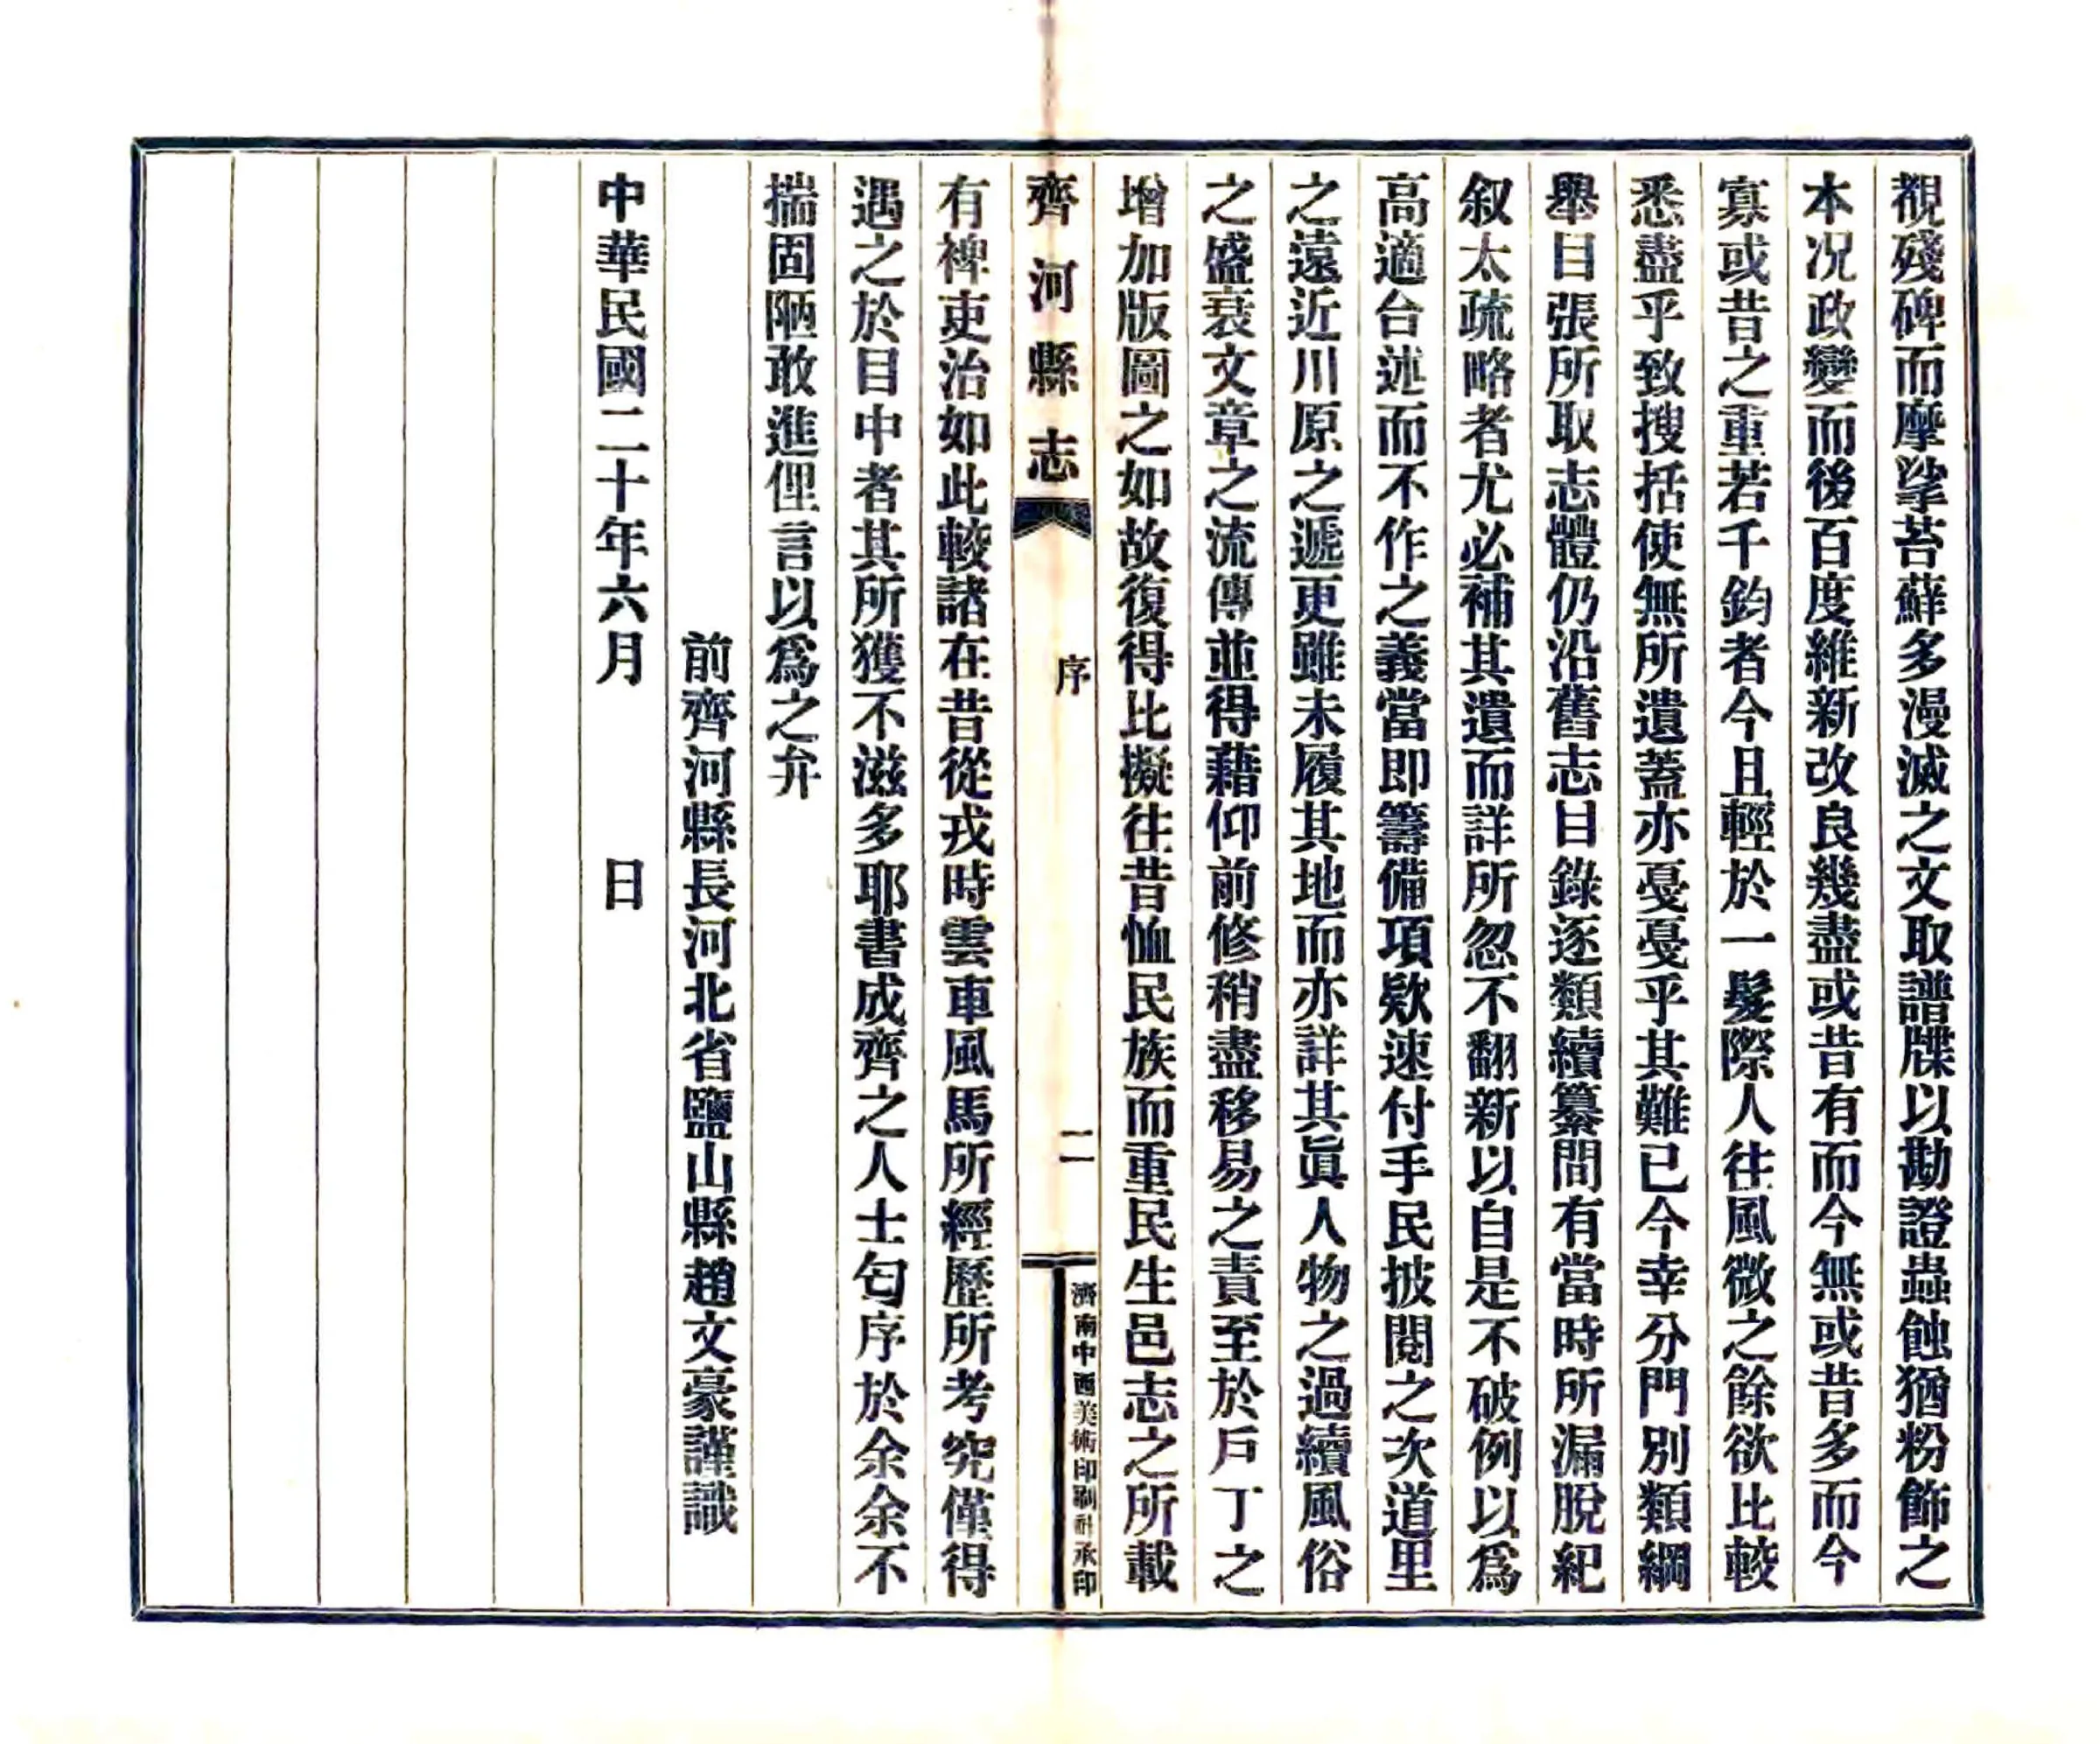 覩殘碑而摩挲苔蘚多漫滅之文取譜牒以勘證蟲蝕猶粉飾之
本况政變而後百度維新改良幾盡或昔有而今無或昔多而今
寡或昔之重若千鈞者今且輕於一髮際人往風微之餘欲比較
悉盡乎致搜括使無所遺蓋亦戞戞乎其難已今幸分門別類綱
舉目張所取志體仍沿舊志目錄逐類續纂間有當時所漏脫紀
叙太疏略者尤必補其遺而詳所忽不翻新以自是不破例以爲
高適合述而不作之義當即籌備項欵速付手民披閱之次道里
之遠近川原之遞更雖未履其地而亦詳其眞人物之過續風俗
之盛衰文章之流傳並得藉仰前修稍盡移易之責至於戶丁之
增加版圖之如故復得比擬往昔恤民族而重民生邑志之所載
齊河縣志
序
二
濟南中西美術印刷社承印
有裨吏治如此較諸在昔從戎時雲車風馬所經歷所考究僅得
遇之於目中者其所獲不滋多耶書成齊之人士匄序於余余不
揣固陋敢進俚言以爲之弁
前齊河縣長河北省鹽山縣趙文豪謹識
中華民國二十年六月 日